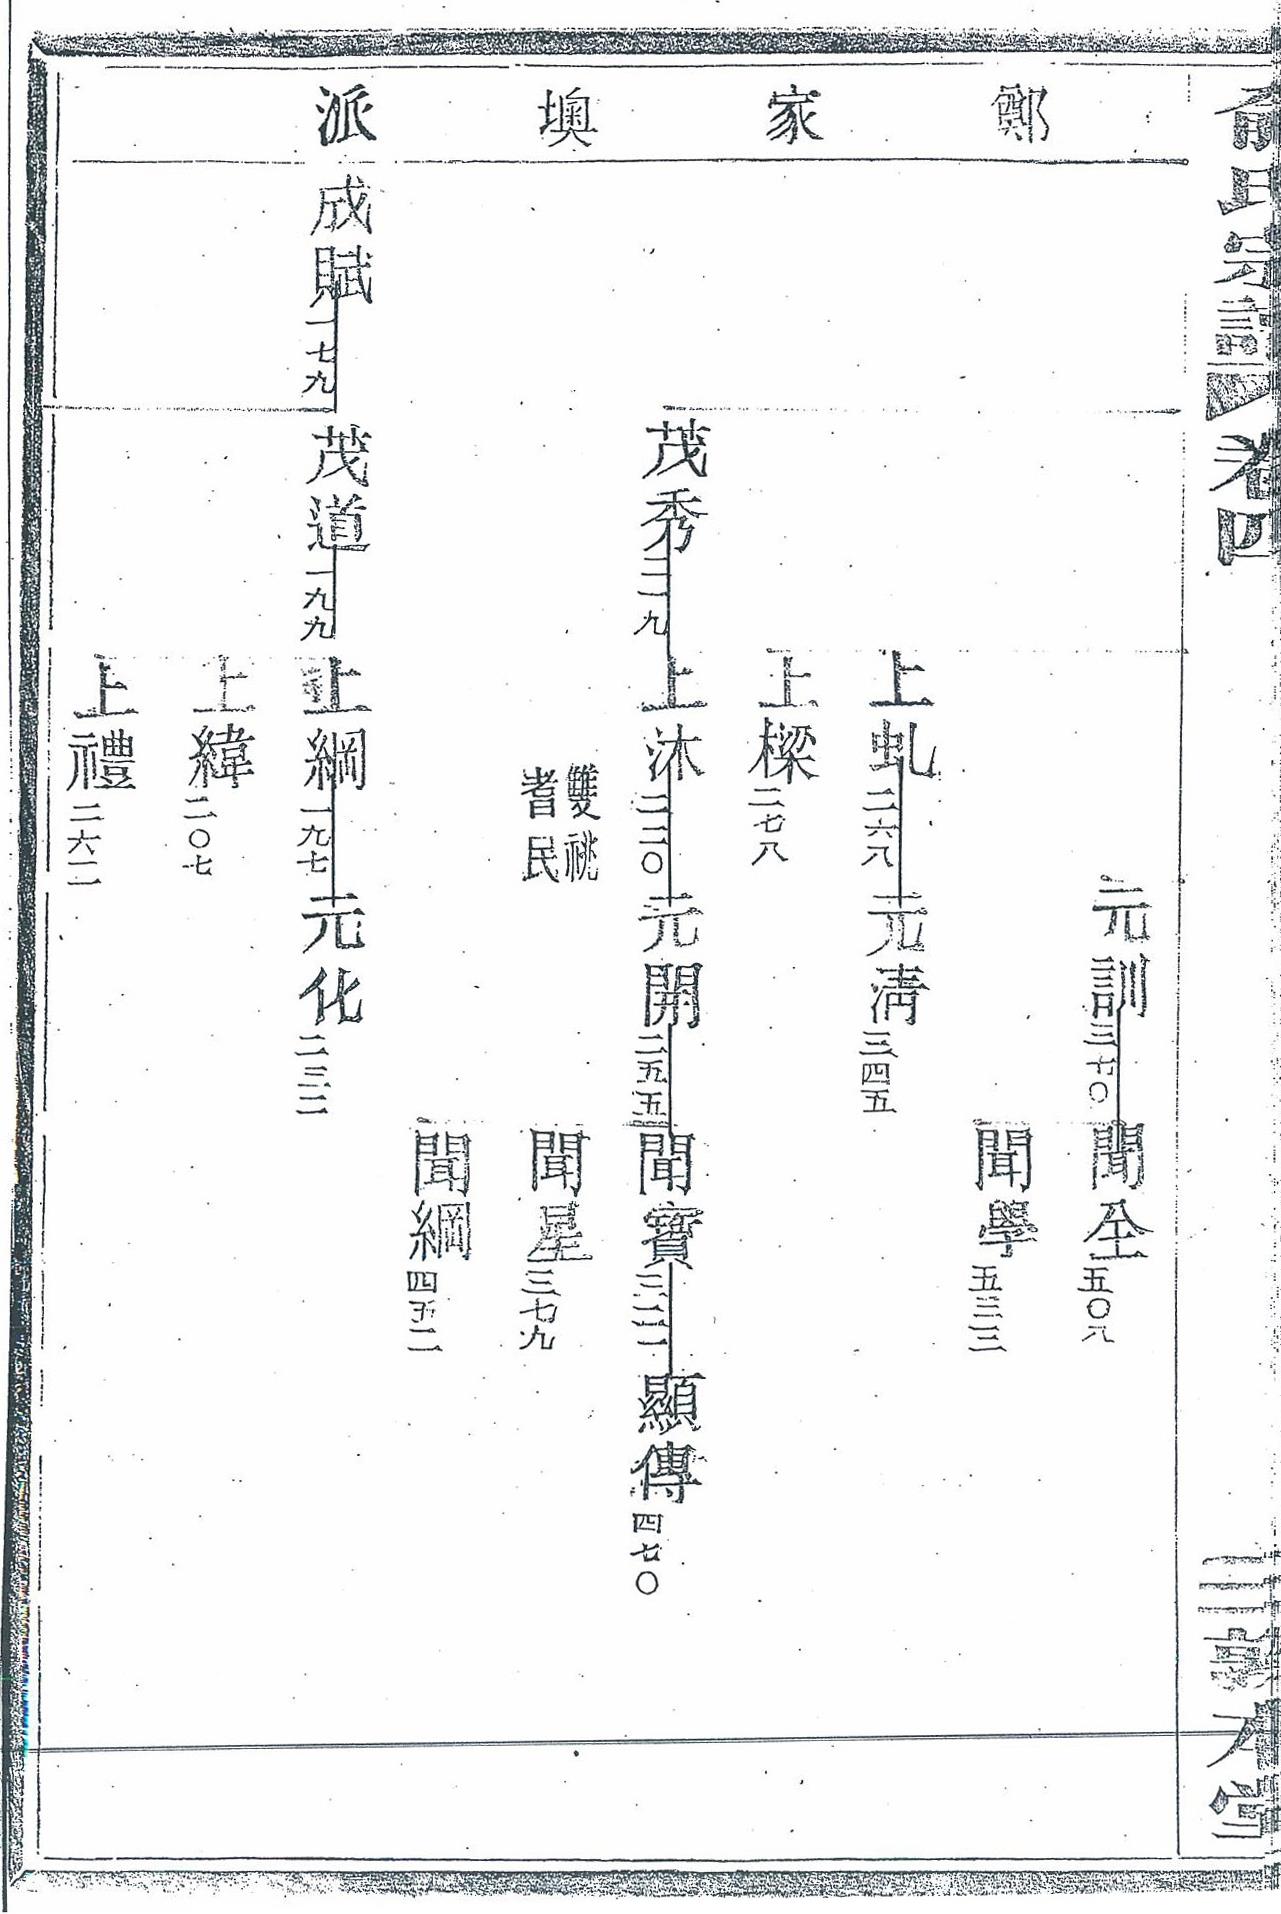 俞氏宗譜
卷四
三
敦本堂
鄭家墺派
元訓三七〇
聞全五〇八
聞學五三三
上虬二六八
元淸三四五
上樑二七八
茂秀二一九
上沐二二〇
元開二五五
聞寶三二一
顯傳四七〇
雙祧
耆民
聞星三七九
聞綱四五二
成賦一七九
茂道一九九
上綱一九七
元化二三二
上緯二〇七
上禮二六二